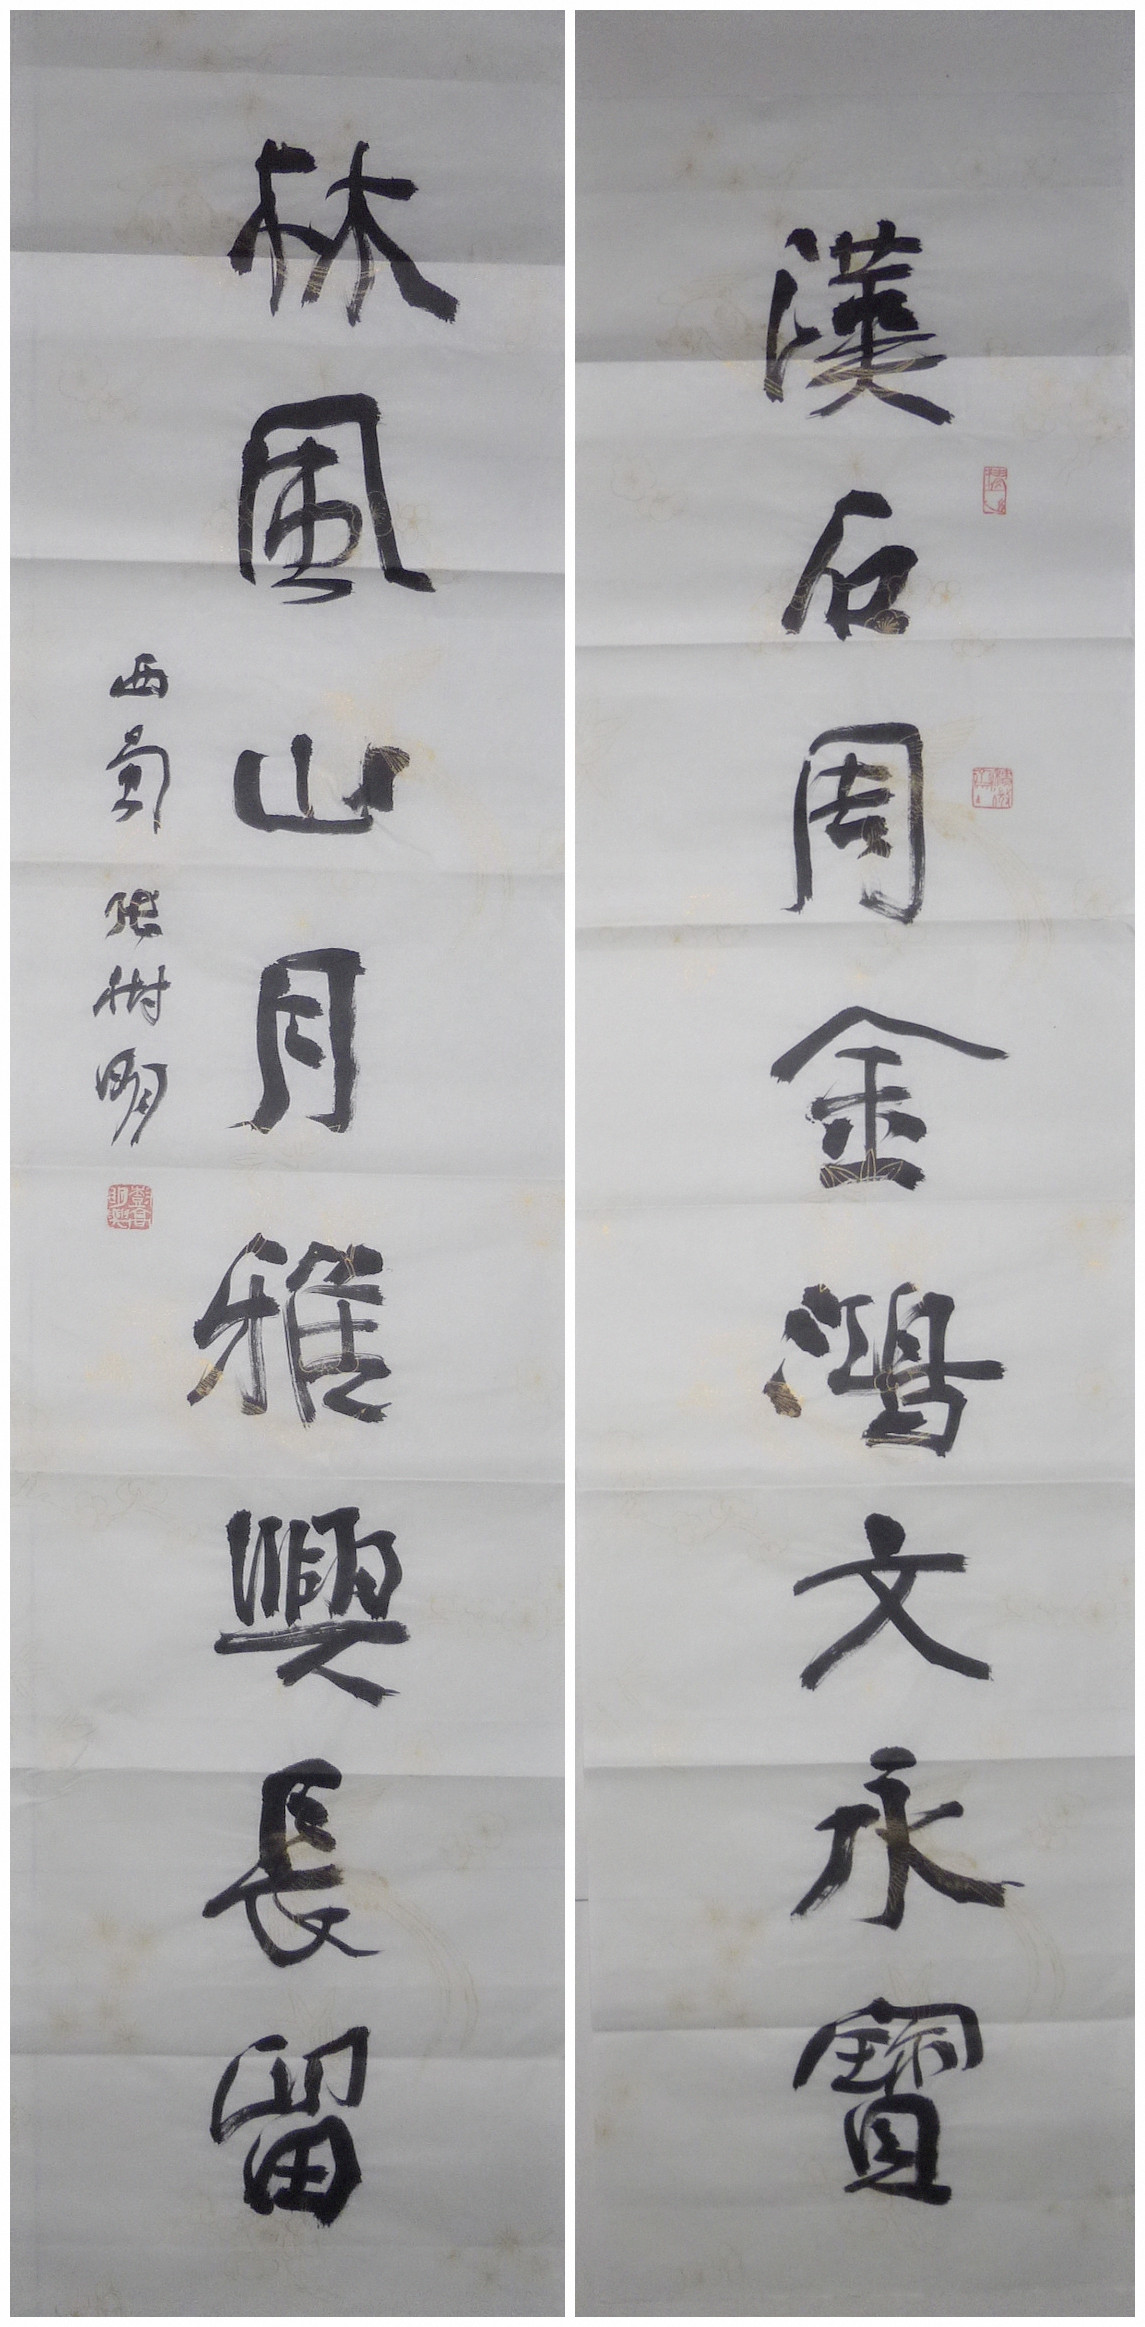 漢石周金鴻文永寶
林風山月雅興長留
西蜀張樹明